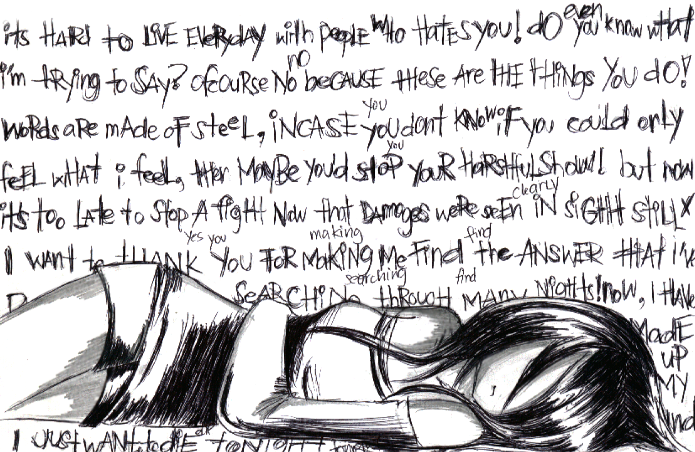 its HARd to LIVE EVERyday with people WHO HATES you! dO even you know what
i'm tRYing to SAy? OfcouRSE NO no bECAUSE tHESE ARE tHE tHiNGS YOU dO!
WORdS aRE mAdE Of StEEL, iNCASE you you dont KNOw; if you couLd onLy
fEEL WHAT i fEEL, tHEr MAyBE you'd StOP you youR
its too LAtE to StOP A fight NOw that DAmAGES wERE SEEN clearly iN SiGHt StiLL
I WANt to tHANK Yes you YOU FOR making MAKiNG ME find find tHE ANSWER tHAt i'VE
searching SEARCHiNG tHROUGH find MANy NiGHtS! NOw, I HAVE
MAdE
UP
MY
I JUSt WANt to diE tONiGHt